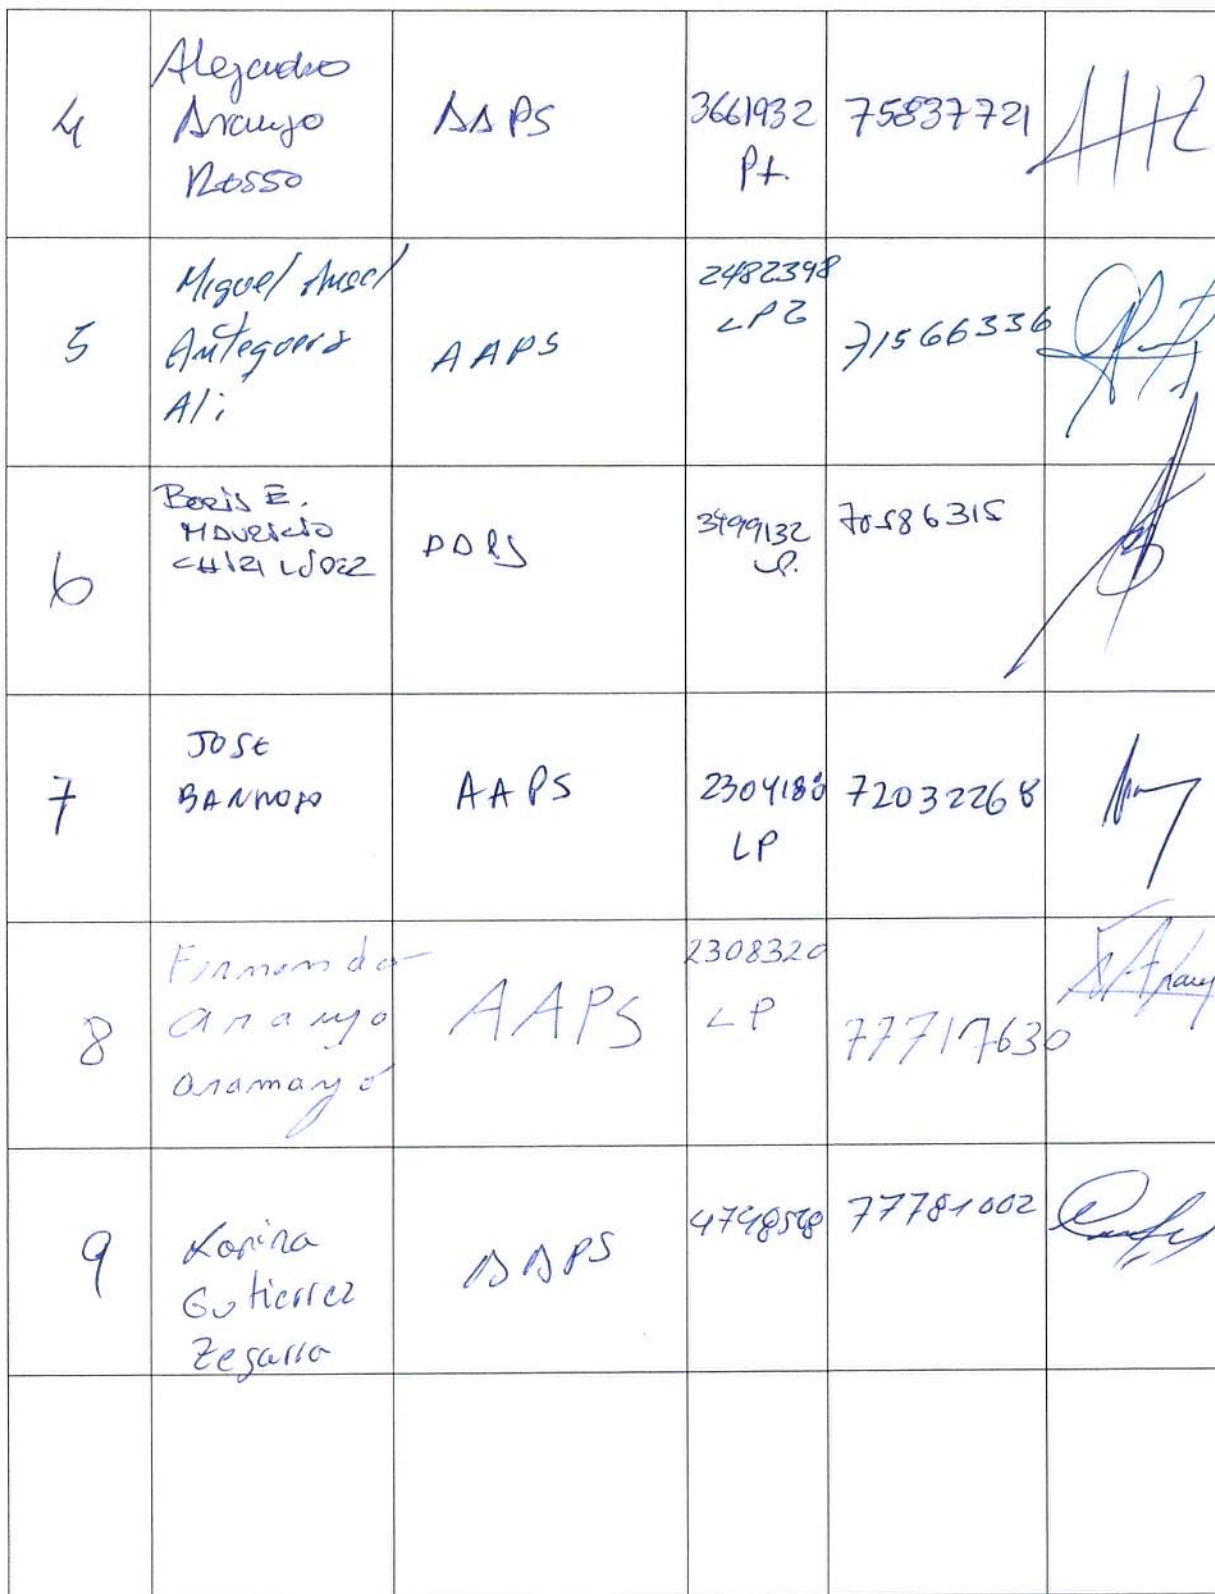 4
Alejandro
Araujo
Rosso
AAPS
3661932
Pt.
75837721
5
Miguel Angel
Antequera
Ali
AAPS
2482398
LPZ
71566336
6
Boris E.
MAURICIO
AAPS
3499132
LP.
70586315
7
JOSE
BARROSO
AAPS
LP
72032268
8
Fernando
Araujo
Aramayo
AAPS
2308320
LP
77717630
9
Karina
Gutierrez
Zegarra
AAPS
77781002